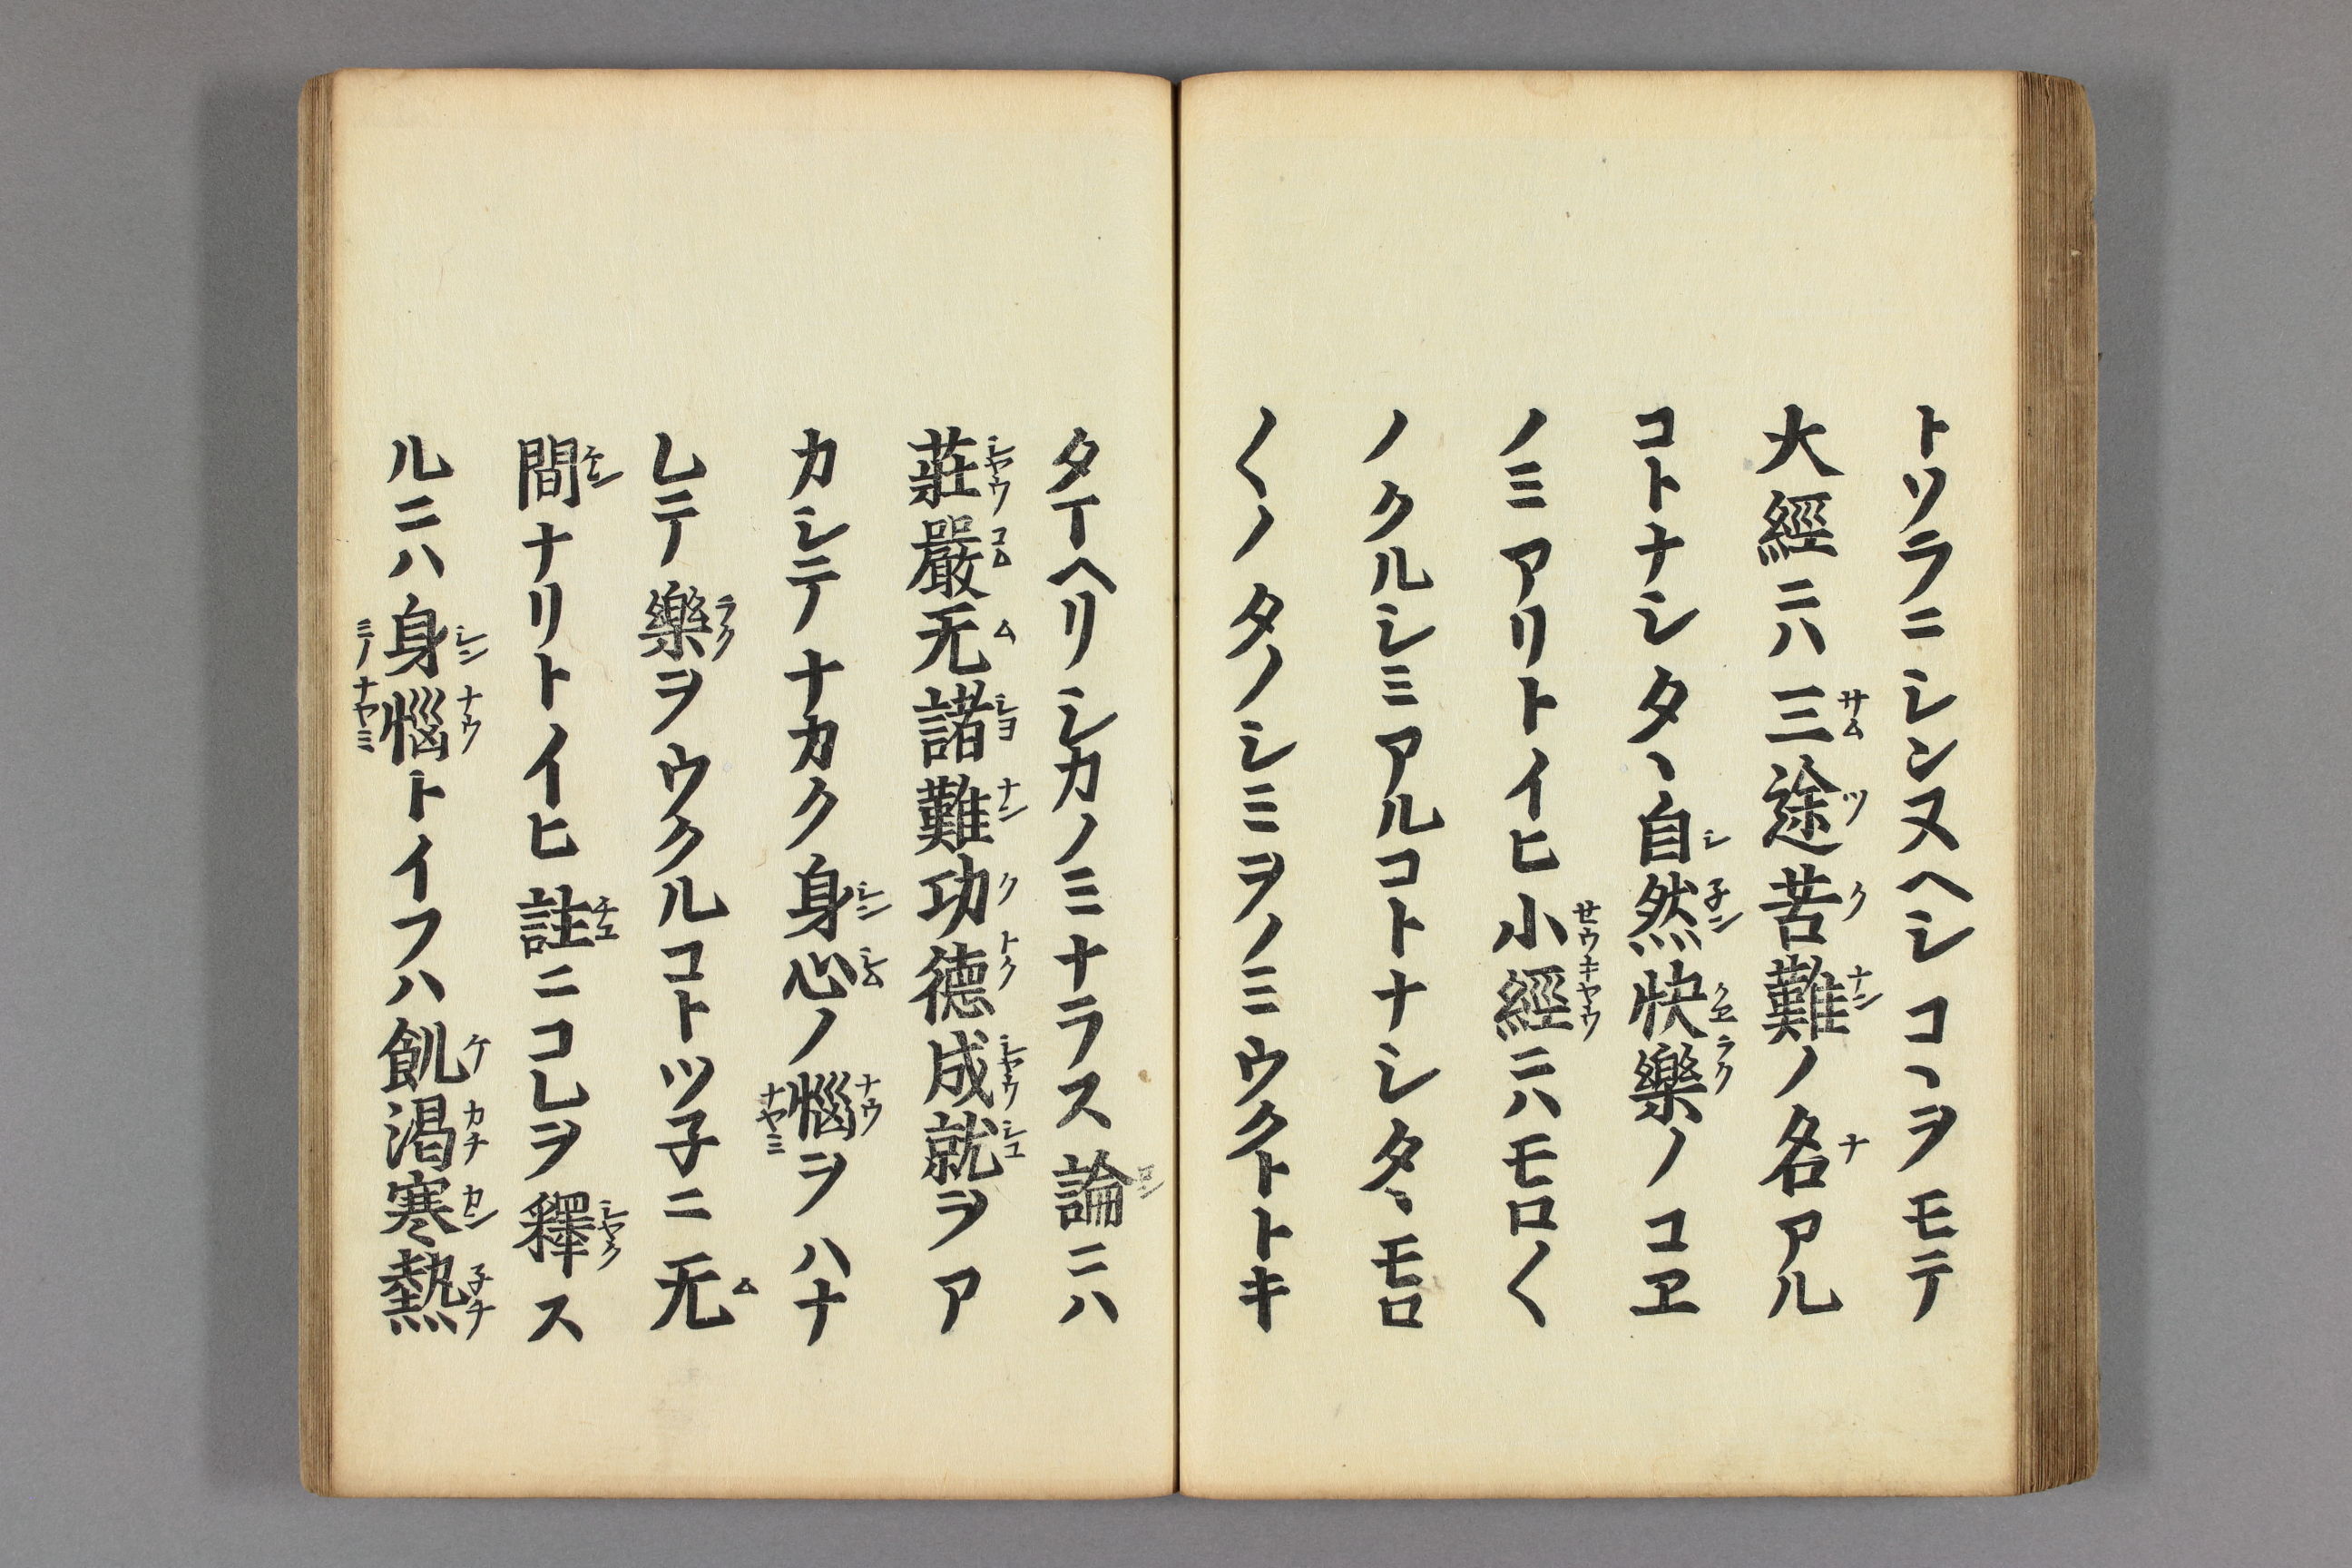 トソラニシンヌヘシコヽヲモテ
大經ニハ三途苦難ノ名アル
コトナシタヽ自然快樂ノコヱ
ノミアリトイヒ小經ニハモロ〱
ノクルシミアルコトナシタヽモロ
〱ノタノシミヲノミウクトトキ
タマヘリシカノミナラス論ニハ
莊嚴无諸難功德成就ヲア
カシテナカク身心ノ惱ヲハナ
レテ樂ヲウクルコトツ子ニ无
間ナリトイヒ註ニコレヲ釋ス
ルニハ身惱トイフハ飢渇寒熱